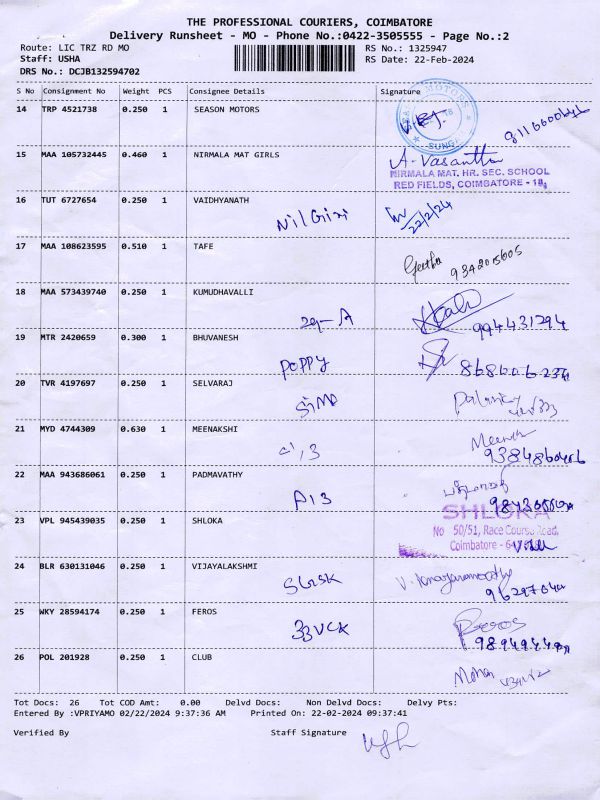 THE PROFESSIONAL COURIERS, COIMBATORE
Delivery Runsheet - MO - Phone No.:0422-3505555 - Page No.:2
Route: LIC TRZ RD MO
RS No.: 1325947
Staff: USHA
RS Date: 22-Feb-2024
DRS No.: DCJB132594702
S No Consignment No Weight PCS Consignee Details Signature
14 TRP 4521738 0.250 1 SEASON MOTORS
15 MAA 105732445 0.460 1 NIRMALA MAT GIRLS A. Vasantha
NIRMALA MAT. HR. SEC. SCHOOL
RED FIELDS, COIMBATORE - 18.
16 TUT 6727654 0.250 1 VAIDHYANATH
Nilgiri 22/2/24
17 MAA 108623595 0.510 1 TAFE
Geetha 9342015605
18 MAA 573439740 0.250 1 KUMUDHAVALLI
29-A 994431294
19 MTR 2420659 0.300 1 BHUVANESH
POPPY
20 TVR 4197697 0.250 1 SELVARAJ
21 MYD 4744309 0.630 1 MEENAKSHI
Meena
22 MAA 943686061 0.250 1 PADMAVATHY
A13
23 VPL 945439035 0.250 1 SHLOKA
SHLOKA
No 50/51, Race Course Road,
Coimbatore -
24 BLR 630131046 0.250 1 VIJAYALAKSHMI
25 WKY 28594174 0.250 1 FEROS
33 VCK Feros
26 POL 201928 0.250 1 CLUB
Mohan
Tot Docs: 26 Tot COD Amt: 0.00 Delvd Docs: Non Delvd Docs: Delvy Pts:
Entered By :VPRIYAMO 02/22/2024 9:37:36 AM Printed On: 22-02-2024 09:37:41
Verified By Staff Signature